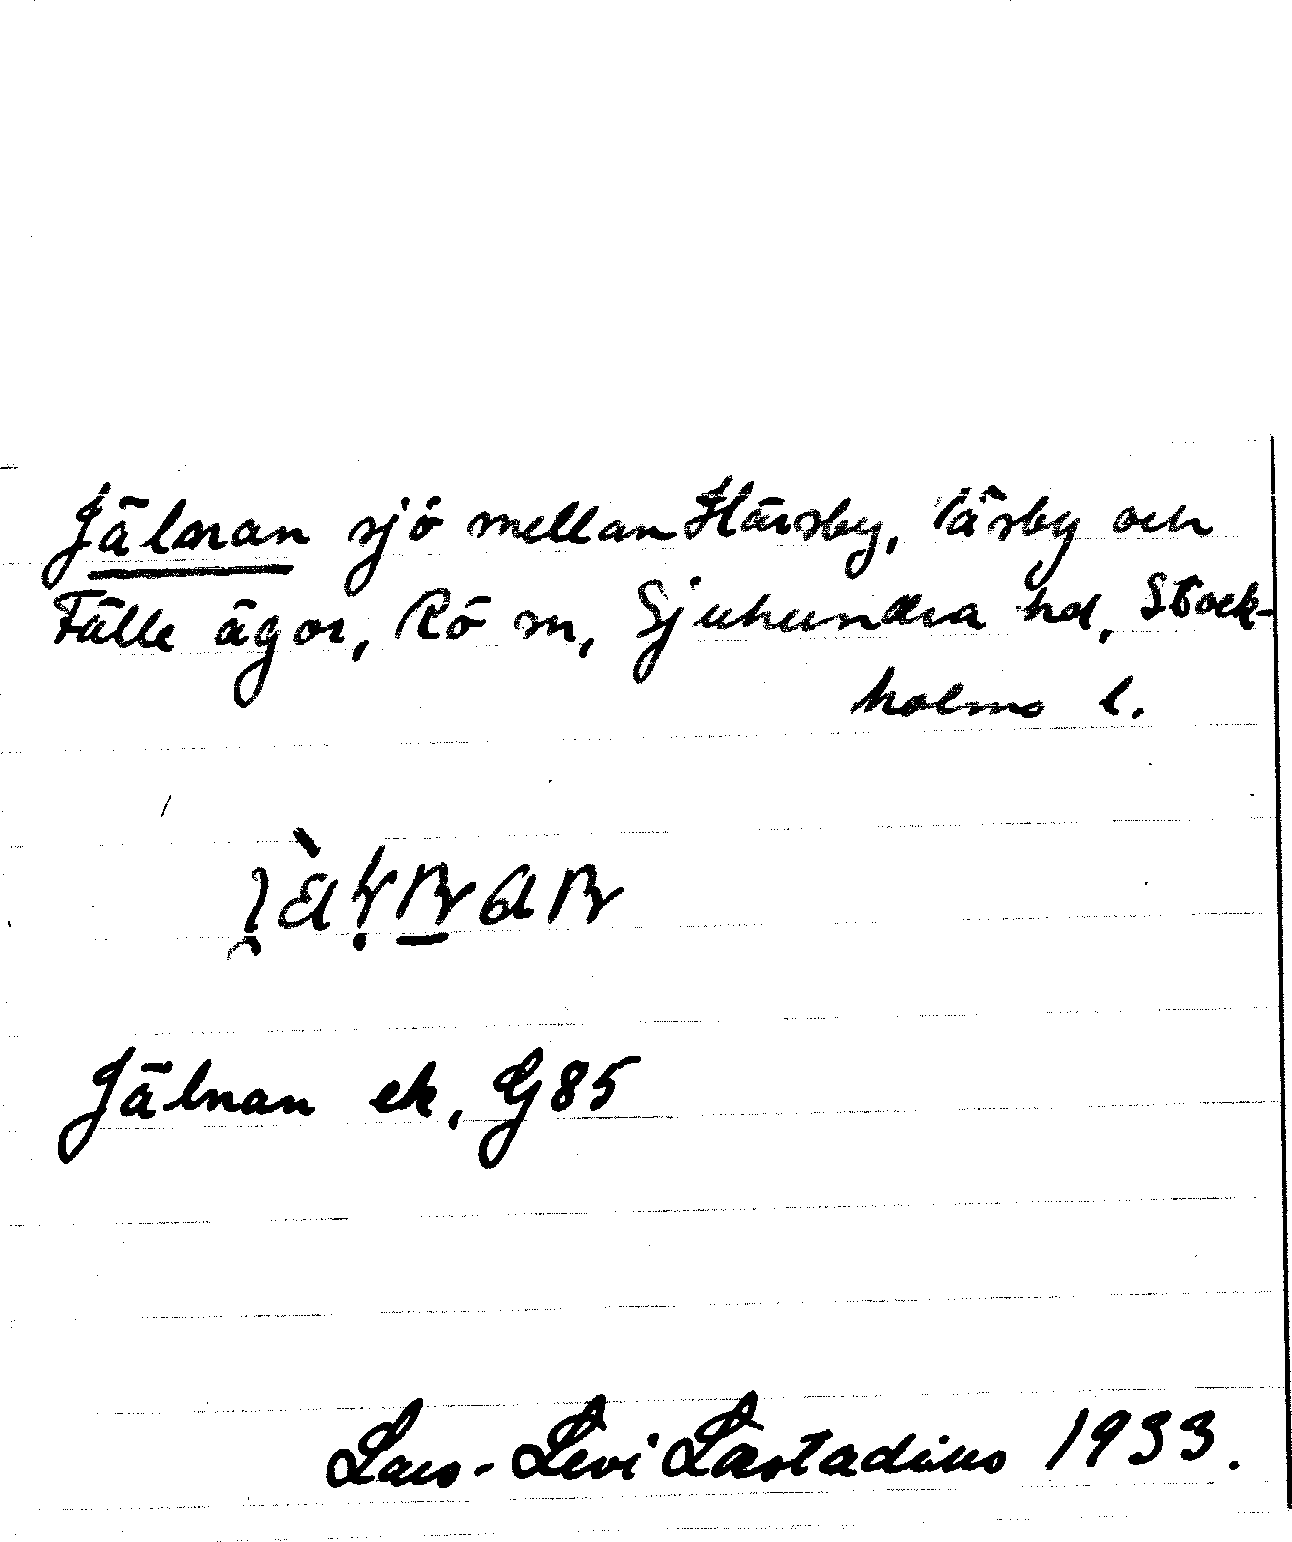 Jälnan sjö mellan Härsby, Väsby och
Fälle ägor, Rö sn, Sjuhundra hd, Stock-
holms l.
Jälnan ek, G85
Lars-Levi Læstadius 1933.